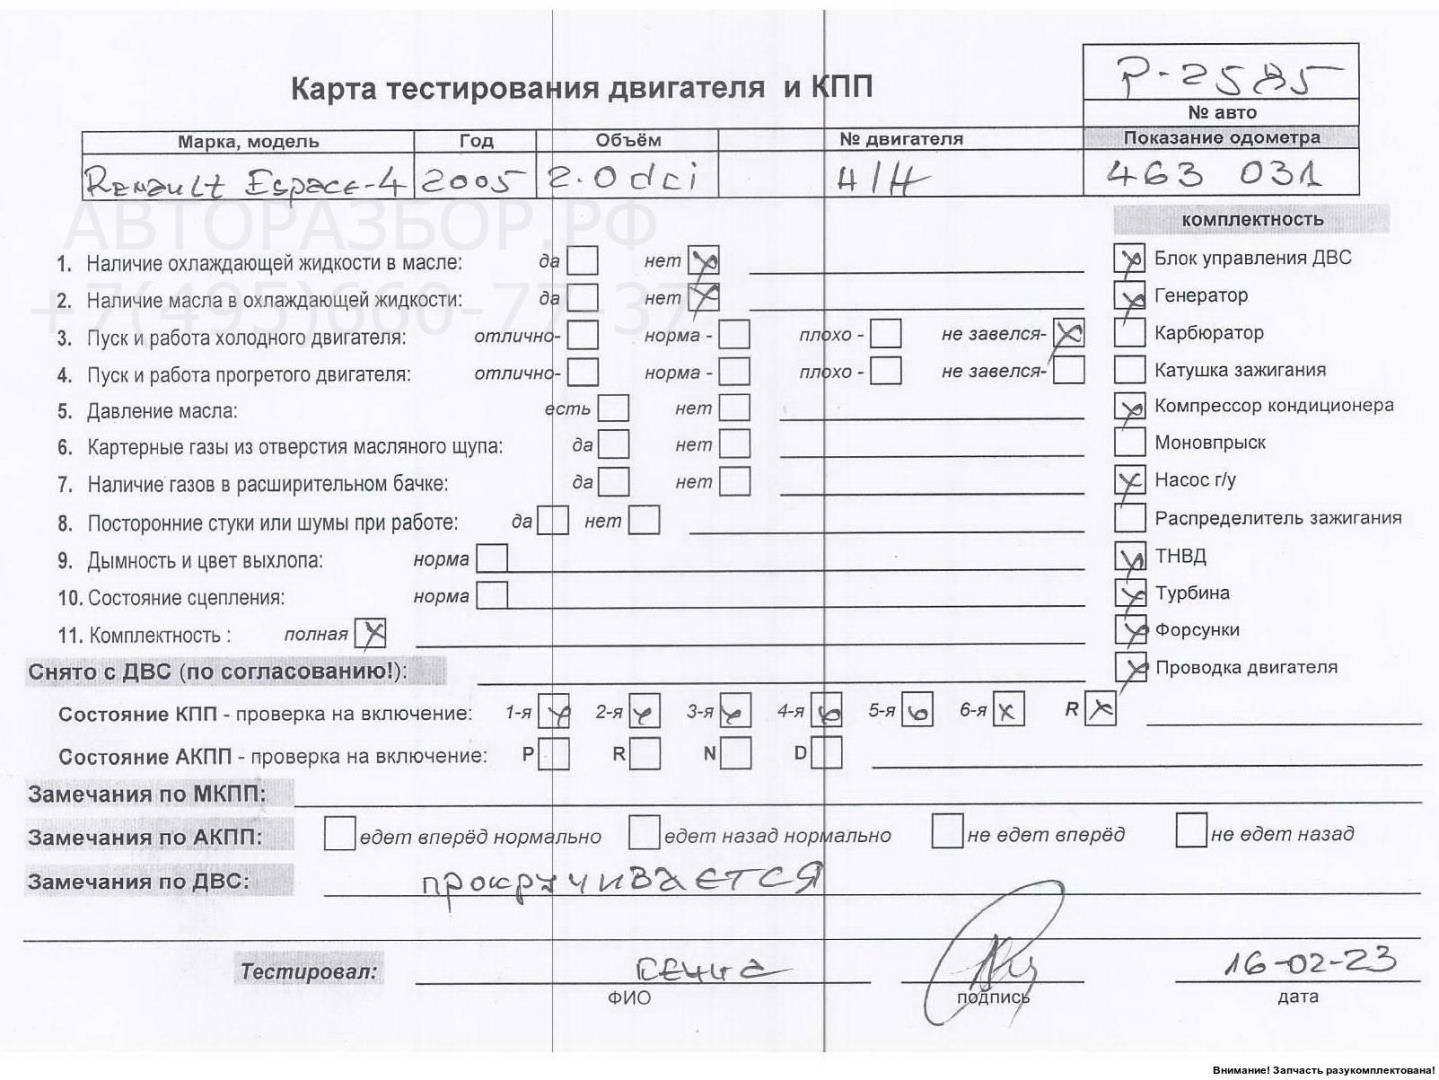 Карта тестирования двигателя и КПП
Р-2585
№ авто
Марка, модель Год Объём № двигателя Показание одометра
Renault Espace-4 2005 2.0 dci н/н 463 031
АВТОРАЗБОР.РФ
+7(495)660-77-37
комплектность
1. Наличие охлаждающей жидкости в масле: да нет
Блок управления ДВС
2. Наличие масла в охлаждающей жидкости: да нет
Генератор
3. Пуск и работа холодного двигателя: отлично- норма - плохо - не завелся-
Карбюратор
4. Пуск и работа прогретого двигателя: отлично- норма - плохо - не завелся-
Катушка зажигания
5. Давление масла: есть нет
Компрессор кондиционера
6. Картерные газы из отверстия масляного щупа: да нет
Моновпрыск
7. Наличие газов в расширительном бачке: да нет
Насос г/у
8. Посторонние стуки или шумы при работе: да нет
Распределитель зажигания
9. Дымность и цвет выхлопа: норма
ТНВД
10. Состояние сцепления: норма
Турбина
11. Комплектность : полная
Форсунки
Снято с ДВС (по согласованию!):
Проводка двигателя
Состояние КПП - проверка на включение: 1-я 2-я 3-я 4-я 5-я 6-я R
Состояние АКПП - проверка на включение: P R N D
Замечания по МКПП:
Замечания по АКПП: едет вперёд нормально едет назад нормально не едет вперёд не едет назад
Замечания по ДВС: прокручивается
Тестировал: 16-02-23
ФИО подпись дата
Внимание! Запчасть разукомплектована!